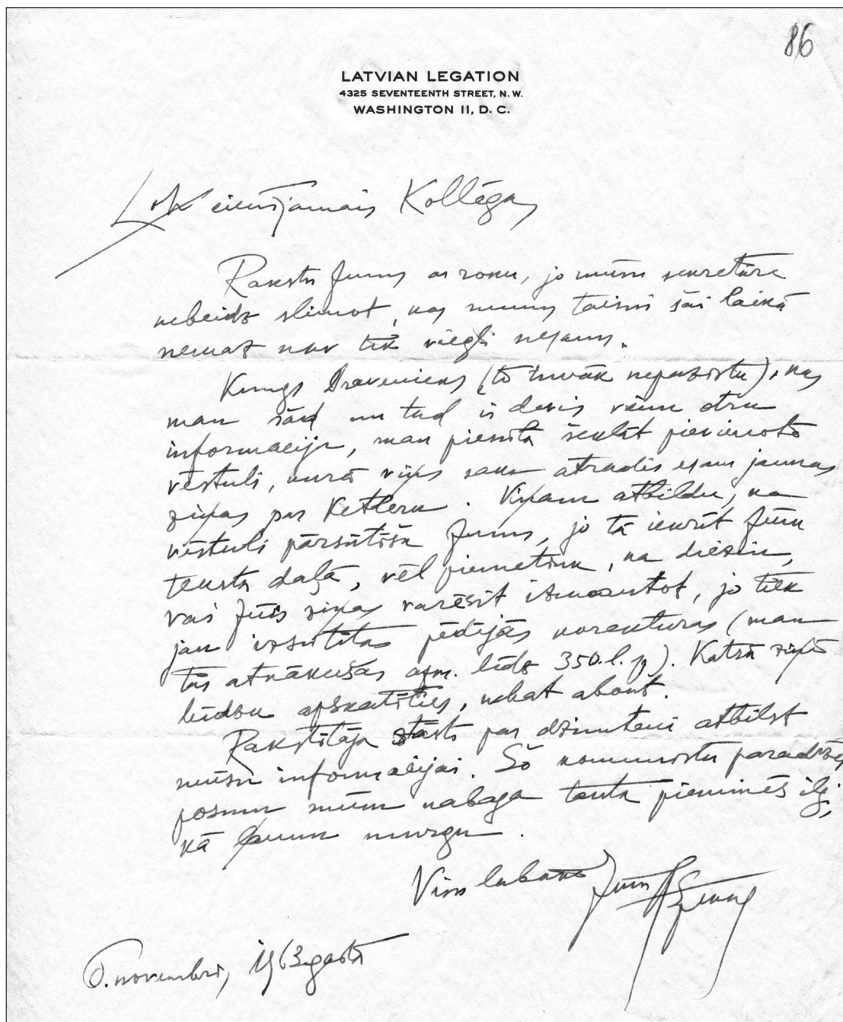 86
LATVIAN LEGATION
4325 SEVENTEENTH STREET, N.W.
WASHINGTON 11, D. C.
Ļoti cienījamais Kollēga,
Rakstu Jums ar roku, jo mūsu sekretāre
nebeidz slimot, kas mums taisni šai laikā
nemaz nav tik viegli nesams.
Kungs Draveniens (to tuvāk nepazīstu), kas
man šad un tad ir devis vienu otru
informaciju, man piesūta šeklāt pievienoto
vēstuli, kurā viņš saka atradis esam jaunas
ziņas par Ketleru. Viņam atbildu, ka
vēstuli pārsūtīšu Jums, jo tā ietilpst Jūsu
teksta daļā, vēl piemetinu, ka diezin,
vai Jūs ziņas varēsit izmantot, jo tiek
jau izsūtītas pēdējās korekturas (man
tās atnākušas apm. līdz 350. l.p.). Katrā ziņā
lūdzu apskatīties, what about.
Rakstītāja stāsts par dzimteni atbilst
mūsu informacijai. Šo komunistu paradīzes
posmu mūsu nabaga tauta pieminēs ilgi,
kā ļaunu murgu.
Visu labāko Jūsu
6. novembrī, 1963. gadā